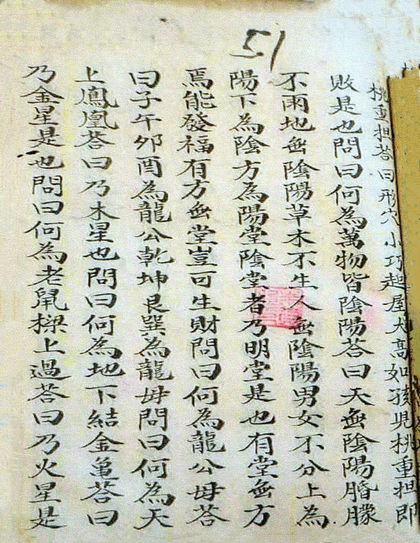 51
挑重担荅曰形穴小巧起屋太高如孩児挑重担即
敗是也問曰何為萬物皆隂陽荅曰天無隂陽朦
不雨地無隂陽草木不生人無隂陽男女不分上為
陽下為隂方為陽堂隂堂者乃明堂是也有堂無方
焉能發福有方無堂豈可生財問曰何為龍公母荅
曰子午卯酉為龍公乾坤艮巽為龍母問曰何為天
上鳳凰荅曰乃木星也問曰何為地下結金亀荅曰
乃金星是也問曰何為老鼠樑上過荅曰乃火星是